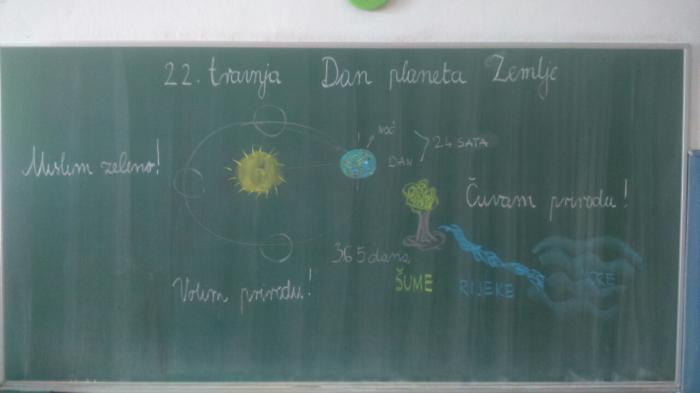 22. travnja Dan planeta Zemlje
NOĆ
24 SATA
DAN
Mislim zeleno!
Čuvam prirodu!
365 dana
Volim prirodu!
ŠUME
RIJEKE